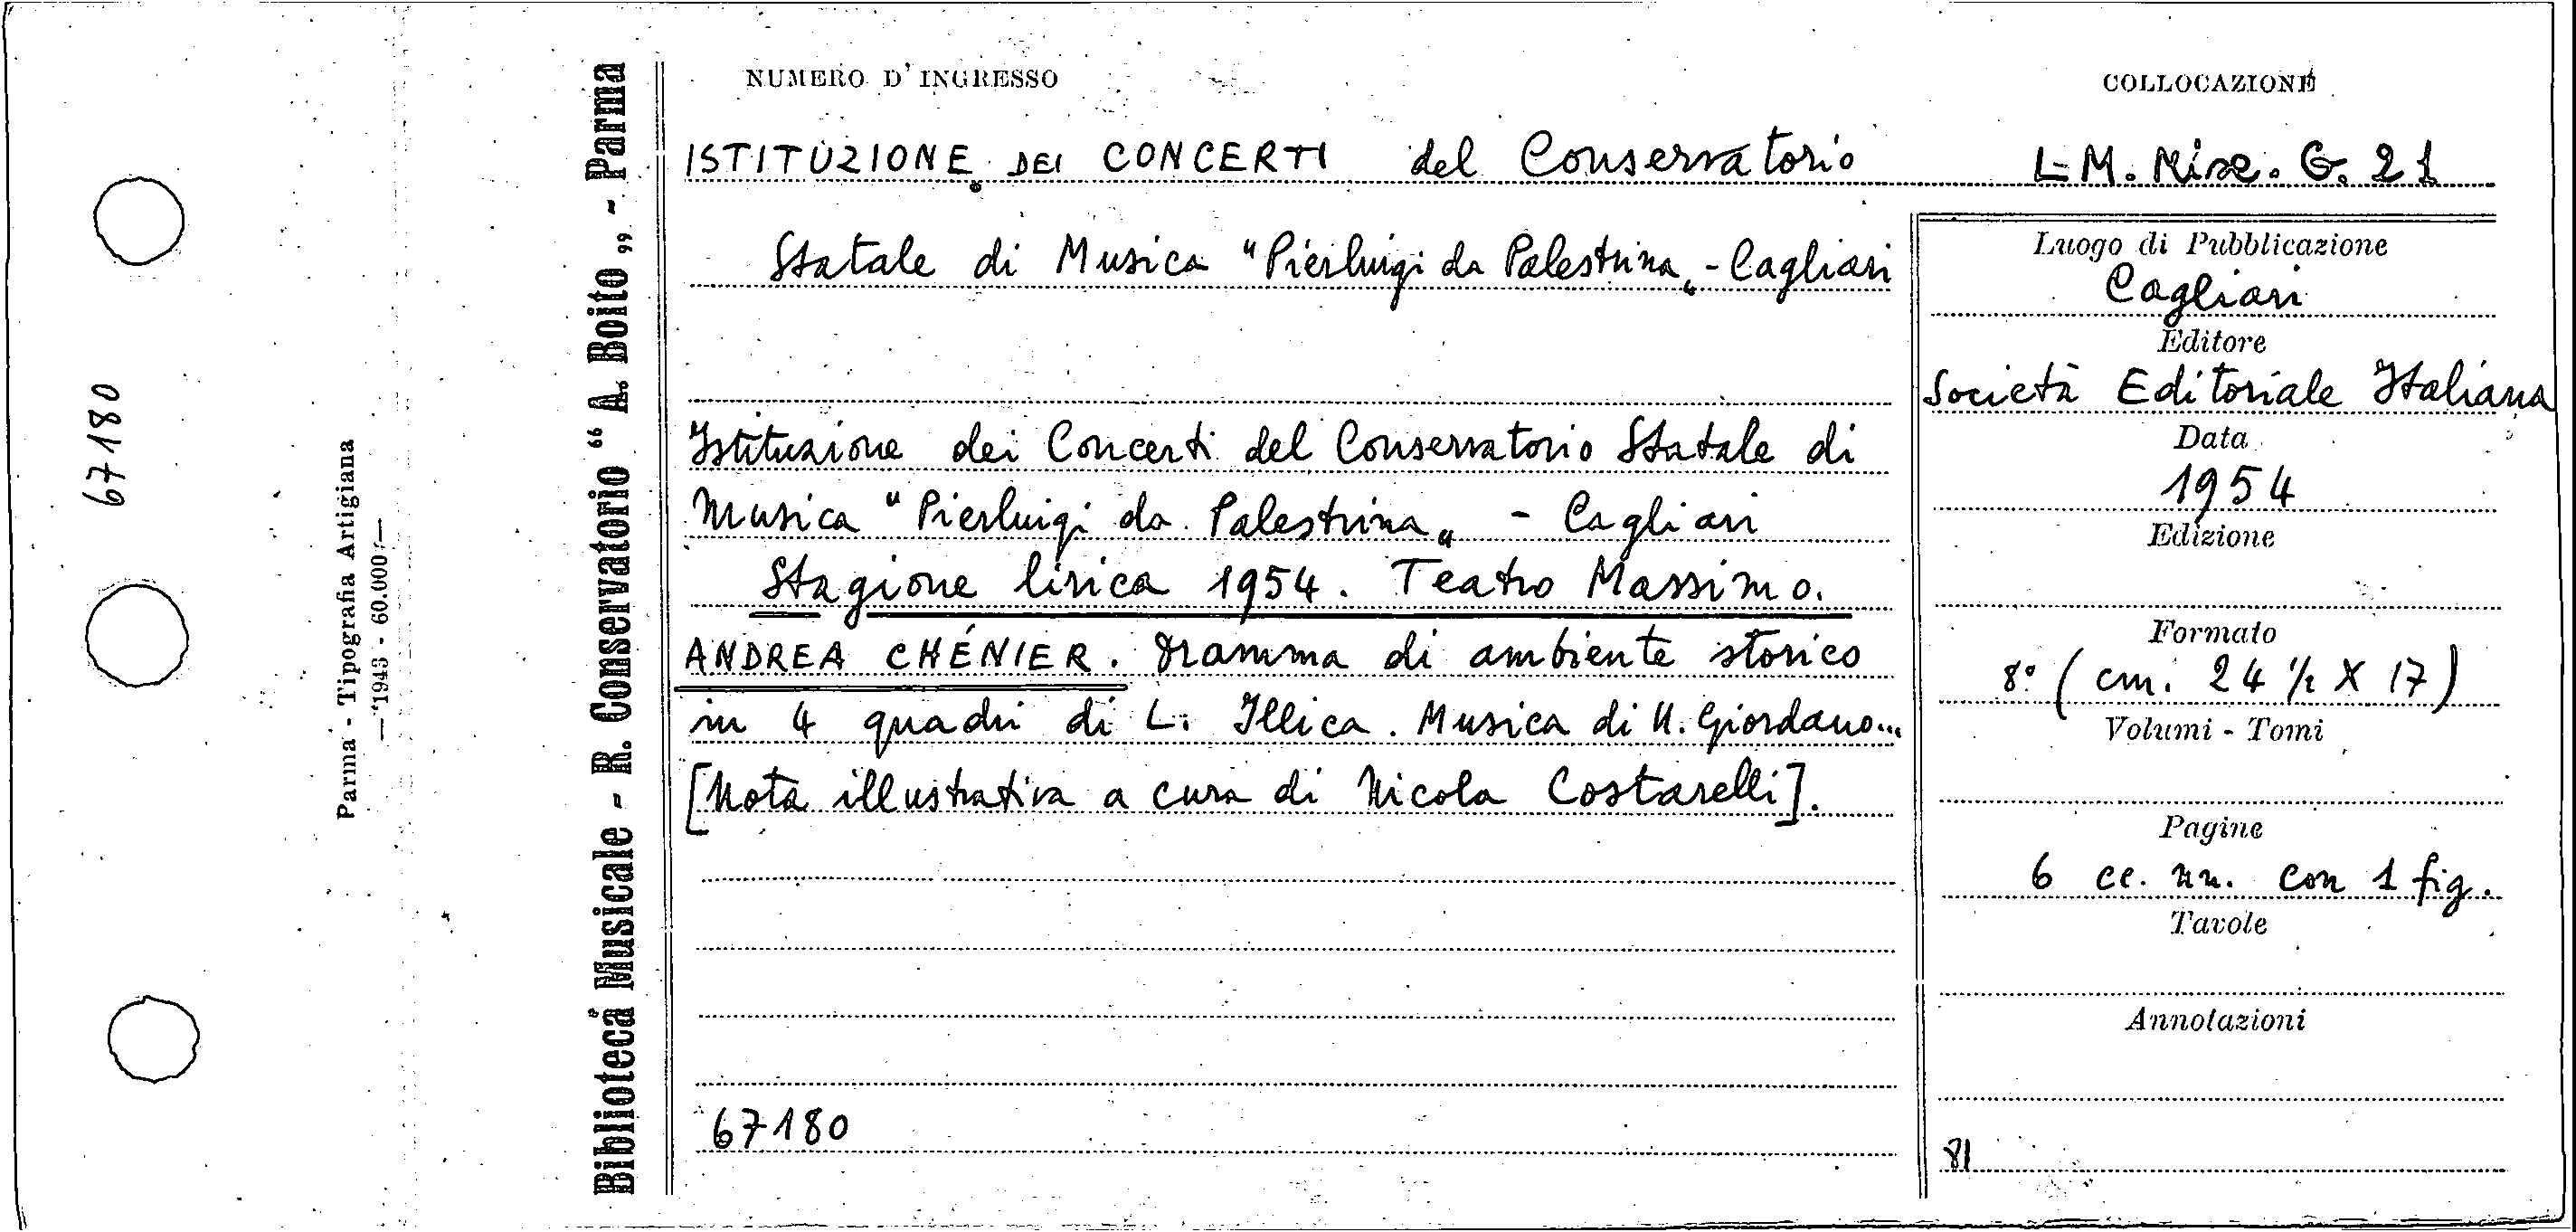 67180
Parma - Tipografia Artigiana
— 1943 - 60.000 —
Biblioteca Musicale - R. Conservatorio “ A. Boito „ - Parma
NUMERO D'INGRESSO
COLLOCAZIONE
ISTITUZIONE DEI CONCERTI del Conservatorio
L.M. Misc. G. 21
Statale di Musica "Pierluigi da Palestrina„ - Cagliari
Istituzione dei Concerti del Conservatorio Statale di
Musica "Pierluigi da Palestrina„ - Cagliari
Stagione lirica 1954. Teatro Massimo.
ANDREA CHÉNIER. Dramma di ambiente storico
in 4 quadri di L. Illica. Musica di U. Giordano...
[Nota illustrativa a cura di Nicola Costarelli].
67180
Luogo di Pubblicazione
Cagliari
Editore
Società Editoriale Italiana
Data
1954
Edizione
Formato
8° (cm. 24 ½ X 17)
Volumi - Tomi
Pagine
6 cc. nn. con 1 fig.
Tavole
Annotazioni
81